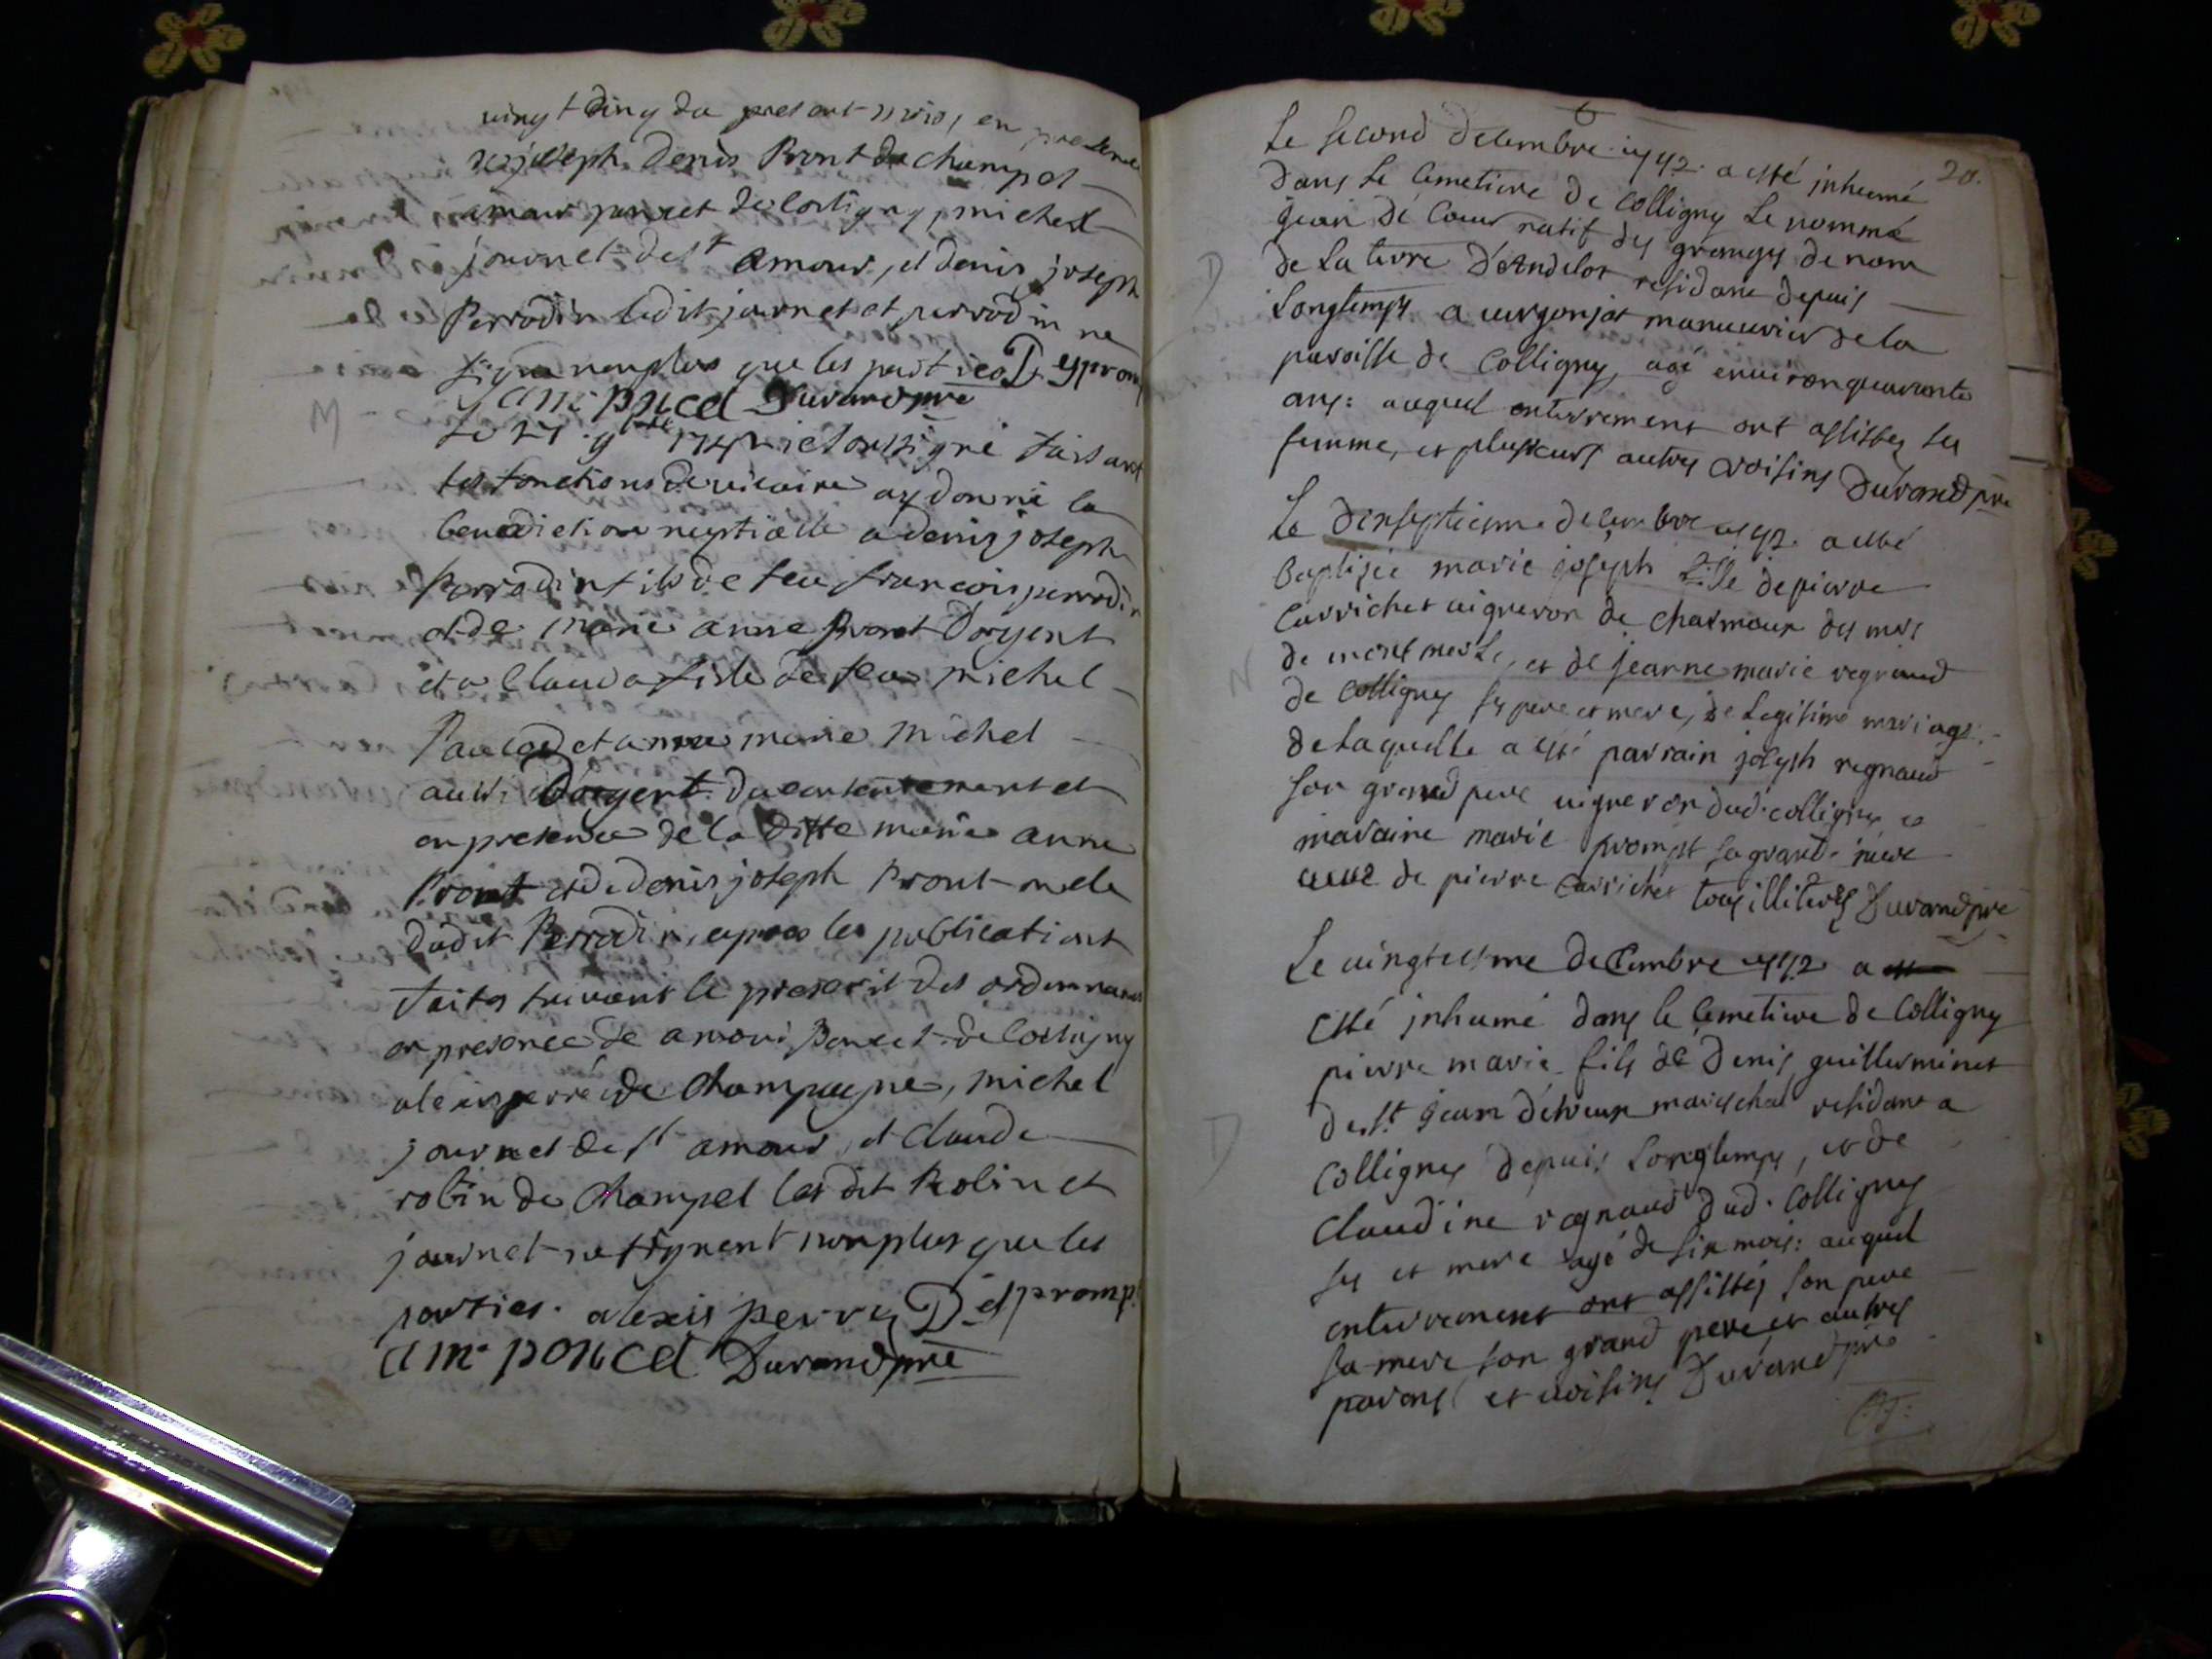 vingt cinq du present mois, en presence
de joseph Denis Pront de champel
amour poncet de Colligny, michel
journet de st amour, et denis joseph
Perrodin ledit journet et perrodin ne
signe non plus que les parties D. J prom
am. poncet Durand pre
M
Le 25 9bre 1742 je soussigné faisant
les fonctions de vicaire ay donné la
benediction nuptialle a denis joseph
Perrodin fils de feu francois perrodin
et de marie anne Pront Doryent
et a Clauda fille de feu michel
et anne marie michel
aussi Doryent du consentement et
en presence de la ditte marie anne
Pront et de denis joseph Pront
dudit Perrodin, apres les publications
faites suivant le prescrit des ordonnances
en presence de amour Poncet de Colligny
alexis perré de Champagne, michel
journet de st amour, et Claude
robin de Champel les dit Robin et
journet ne signent non plus que les
parties. alexis perrey D. J promp
am. poncet Durand pre
20.
Le second decembre 1742 a esté inhumé
dans le Cemetiere de Colligny Le nommé
jean de Coeur natif des granges de nom
D
de La terre d'Andelot residant depuis
Longtemps a vergonjat manuvrier de la
paroisse de Colligny, agé environ quarante
ans: auquel enterrement ont assistez sa
femme, et plusieurs autres voisins Durand pre
Le dixseptiesme decembre 1742 a esté
Baptizée marie joseph fille de pierre
Carrichet vigneron de charmoux des mis
N
de montmerle, et de jeanne marie regnaud
de Colligny ses pere et mere, de Legitime mariage.
de Laquelle a esté parrain joseph regnaud
son grand pere vigneron dud. colligny et
maraine marie prompt sa grand. mere
de pierre Carrichet tous illiterés Durand pre
Le vingtiesme decembre 1742 a
Esté inhumé dans le Cemetiere de Colligny
pierre marie fils de Denis guillerminet
de St. jean d'étreux mareschal residant a
D
Colligny depuis Longtemps, et de
Claudine regnaud dud. Colligny
ses et mere agé de six mois: auquel
enterrement ont assistés son pere
sa mere son grand pere et autres
parens et voisins Durand pre